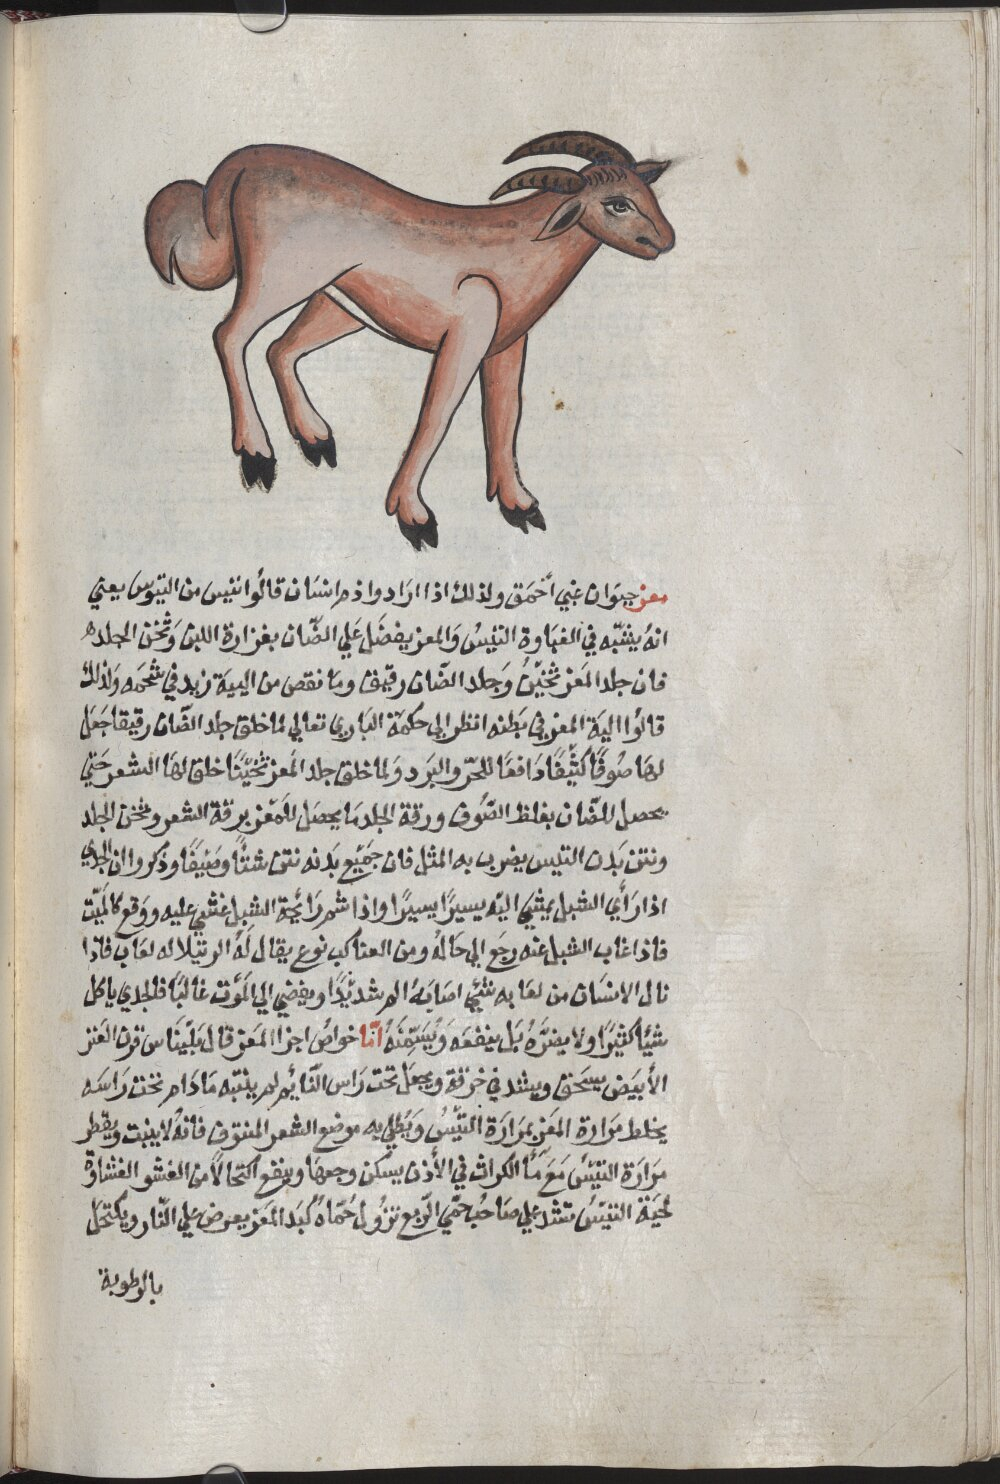 معز حيوان غبي أحمق ولذلك اذا ارادوا ذم انسان قالوا تيس من التيوس يعني
انه يشبه في الغباوة التيس والمعز يفضل علي الضّان بغزارة اللبن وثخن الجلده
فان جلد المعز ثخين وجلد الضّان رقيق وما نقص من الية زيد في شحمه ولذلك
قالوا الية المعز في بطنه انظر الي حكمة الباري تعالي لما خلق جلد الضّان رقيقا جعل
لها صوفًا كثيفًا دافعا للحرّ والبرد ولما خلق جلد المعز ثخينًا خلق لها الشعر حتي
يحصل للضّان بغلظ الصّوف ورقة الجلد ما يحصل للمعز برقة الشعر وثخن الجلد
ونتن بدن التيس يضرب به المثل فان جميع بدنه نتن شتًا وصيفًا وذكروا ان الجدي
اذا رأي الشبل يمشي اليه يسيرًا يسيرًا واذا شم رائحة الشبل غشي عليه ووقع كالميّت
فاذا غاب الشبل عنه رجع الي حاله ومن العناكب نوع يقال له الرتيلا له لعاب فاذا
نال الانسان من لعابه شئ اصابه الم شديدًا ويفضي الي الموت غالبًا فالجدي ياكل
شيًا كثيرًا ولا يضره بل ينفعه ويسمنه أمّا خواص اجزا المعز قال بليناس قرن العنز
الأبيض يسحق ويشد في خرقة ويجعل تحت راس النّايم لم ينتبه مادام تحت راسه
يخلط مرارة المعز بمرارة التيس ويطلي به موضع الشعر المنتوف فانه لا ينبت ويقطر
مرارة التيس مع مأ الكراث في الأذن يسكن وجعها وينفع اكتحالاً من الغشو الغشاوة
لحية التيس تشد علي صاحب حمّي الرّبع تزول حمّاه كبد المعز يعرض علي النّار ويكتحل
بالرطوبة